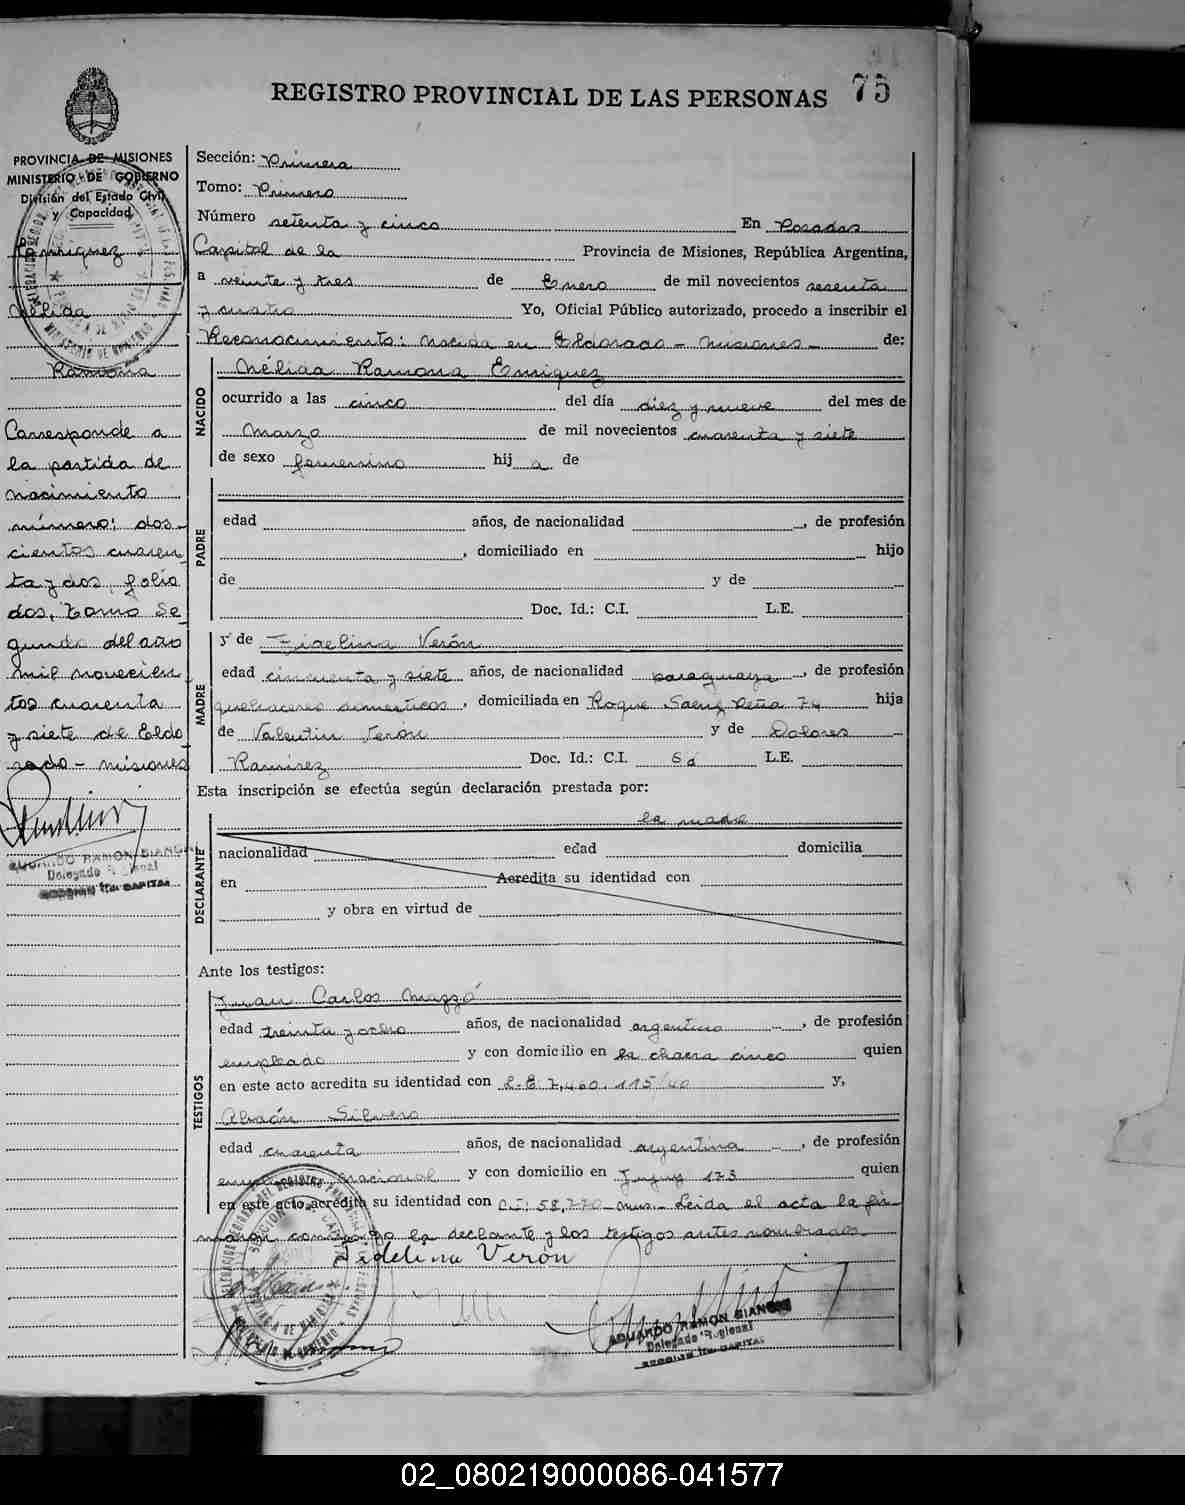 REGISTRO PROVINCIAL DE LAS PERSONAS 75
PROVINCIA DE MISIONES
MINISTERIO DE GOBIERNO
División del Estado Civil
y Capacidad
Enriquez
Nélida
Ramona
Corresponde a
la partida de
nacimiento
número: dos-
cientos cuaren
ta y dos, folio
dos, tomo Se
gundo del año
mil novecien
tos cuarenta
y siete de Eldo
rado - misiones
EDUARDO RAMON BIANGHI
Delegado Regional
SECCION 1ra. CAPITAL
Sección: Primera
Tomo: Primero
Número setenta y cinco En Posadas
Capital de la Provincia de Misiones, República Argentina,
a veinte y tres de Enero de mil novecientos sesenta
y cuatro Yo, Oficial Público autorizado, procedo a inscribir el
Reconocimiento: nacida en Eldorado - misiones - de:
NACIDO
Nélida Ramona Enriquez
ocurrido a las cinco del día diez y nueve del mes de
Marzo de mil novecientos cuarenta y siete
de sexo femenino hij a de
PADRE
edad años, de nacionalidad , de profesión
, domiciliado en hijo
de y de
Doc. Id.: C.I. L.E.
MADRE
y de Fidelina Verón
edad cincuenta y siete años, de nacionalidad paraguaya , de profesión
quehaceres domesticos , domiciliada en Roque Saenz Peña 74 hija
de Valentin Verón y de Dolores
Ramirez Doc. Id.: C.I. L.E.
Esta inscripción se efectúa según declaración prestada por:
la madre
DECLARANTE
nacionalidad edad domicilia
en Acredita su identidad con
y obra en virtud de
Ante los testigos:
TESTIGOS
Juan Carlos Mazzó
edad treinta y ocho años, de nacionalidad argentino , de profesión
empleado y con domicilio en la chacra cinco quien
en este acto acredita su identidad con L.E. 7,460.115/40 y,
Silvero
edad cuarenta años, de nacionalidad argentina , de profesión
nacional y con domicilio en Jujuy 173 quien
en este acto acredita su identidad con C.I: 58,770 - mns.- Leida el acta la fir-
man conmigo la declante y los testigos antes nombrados
Fidelina Verón
EDUARDO RAMON BIANGHI
Delegado Regional
SECCION 1ra. CAPITAL
02_080219000086-041577